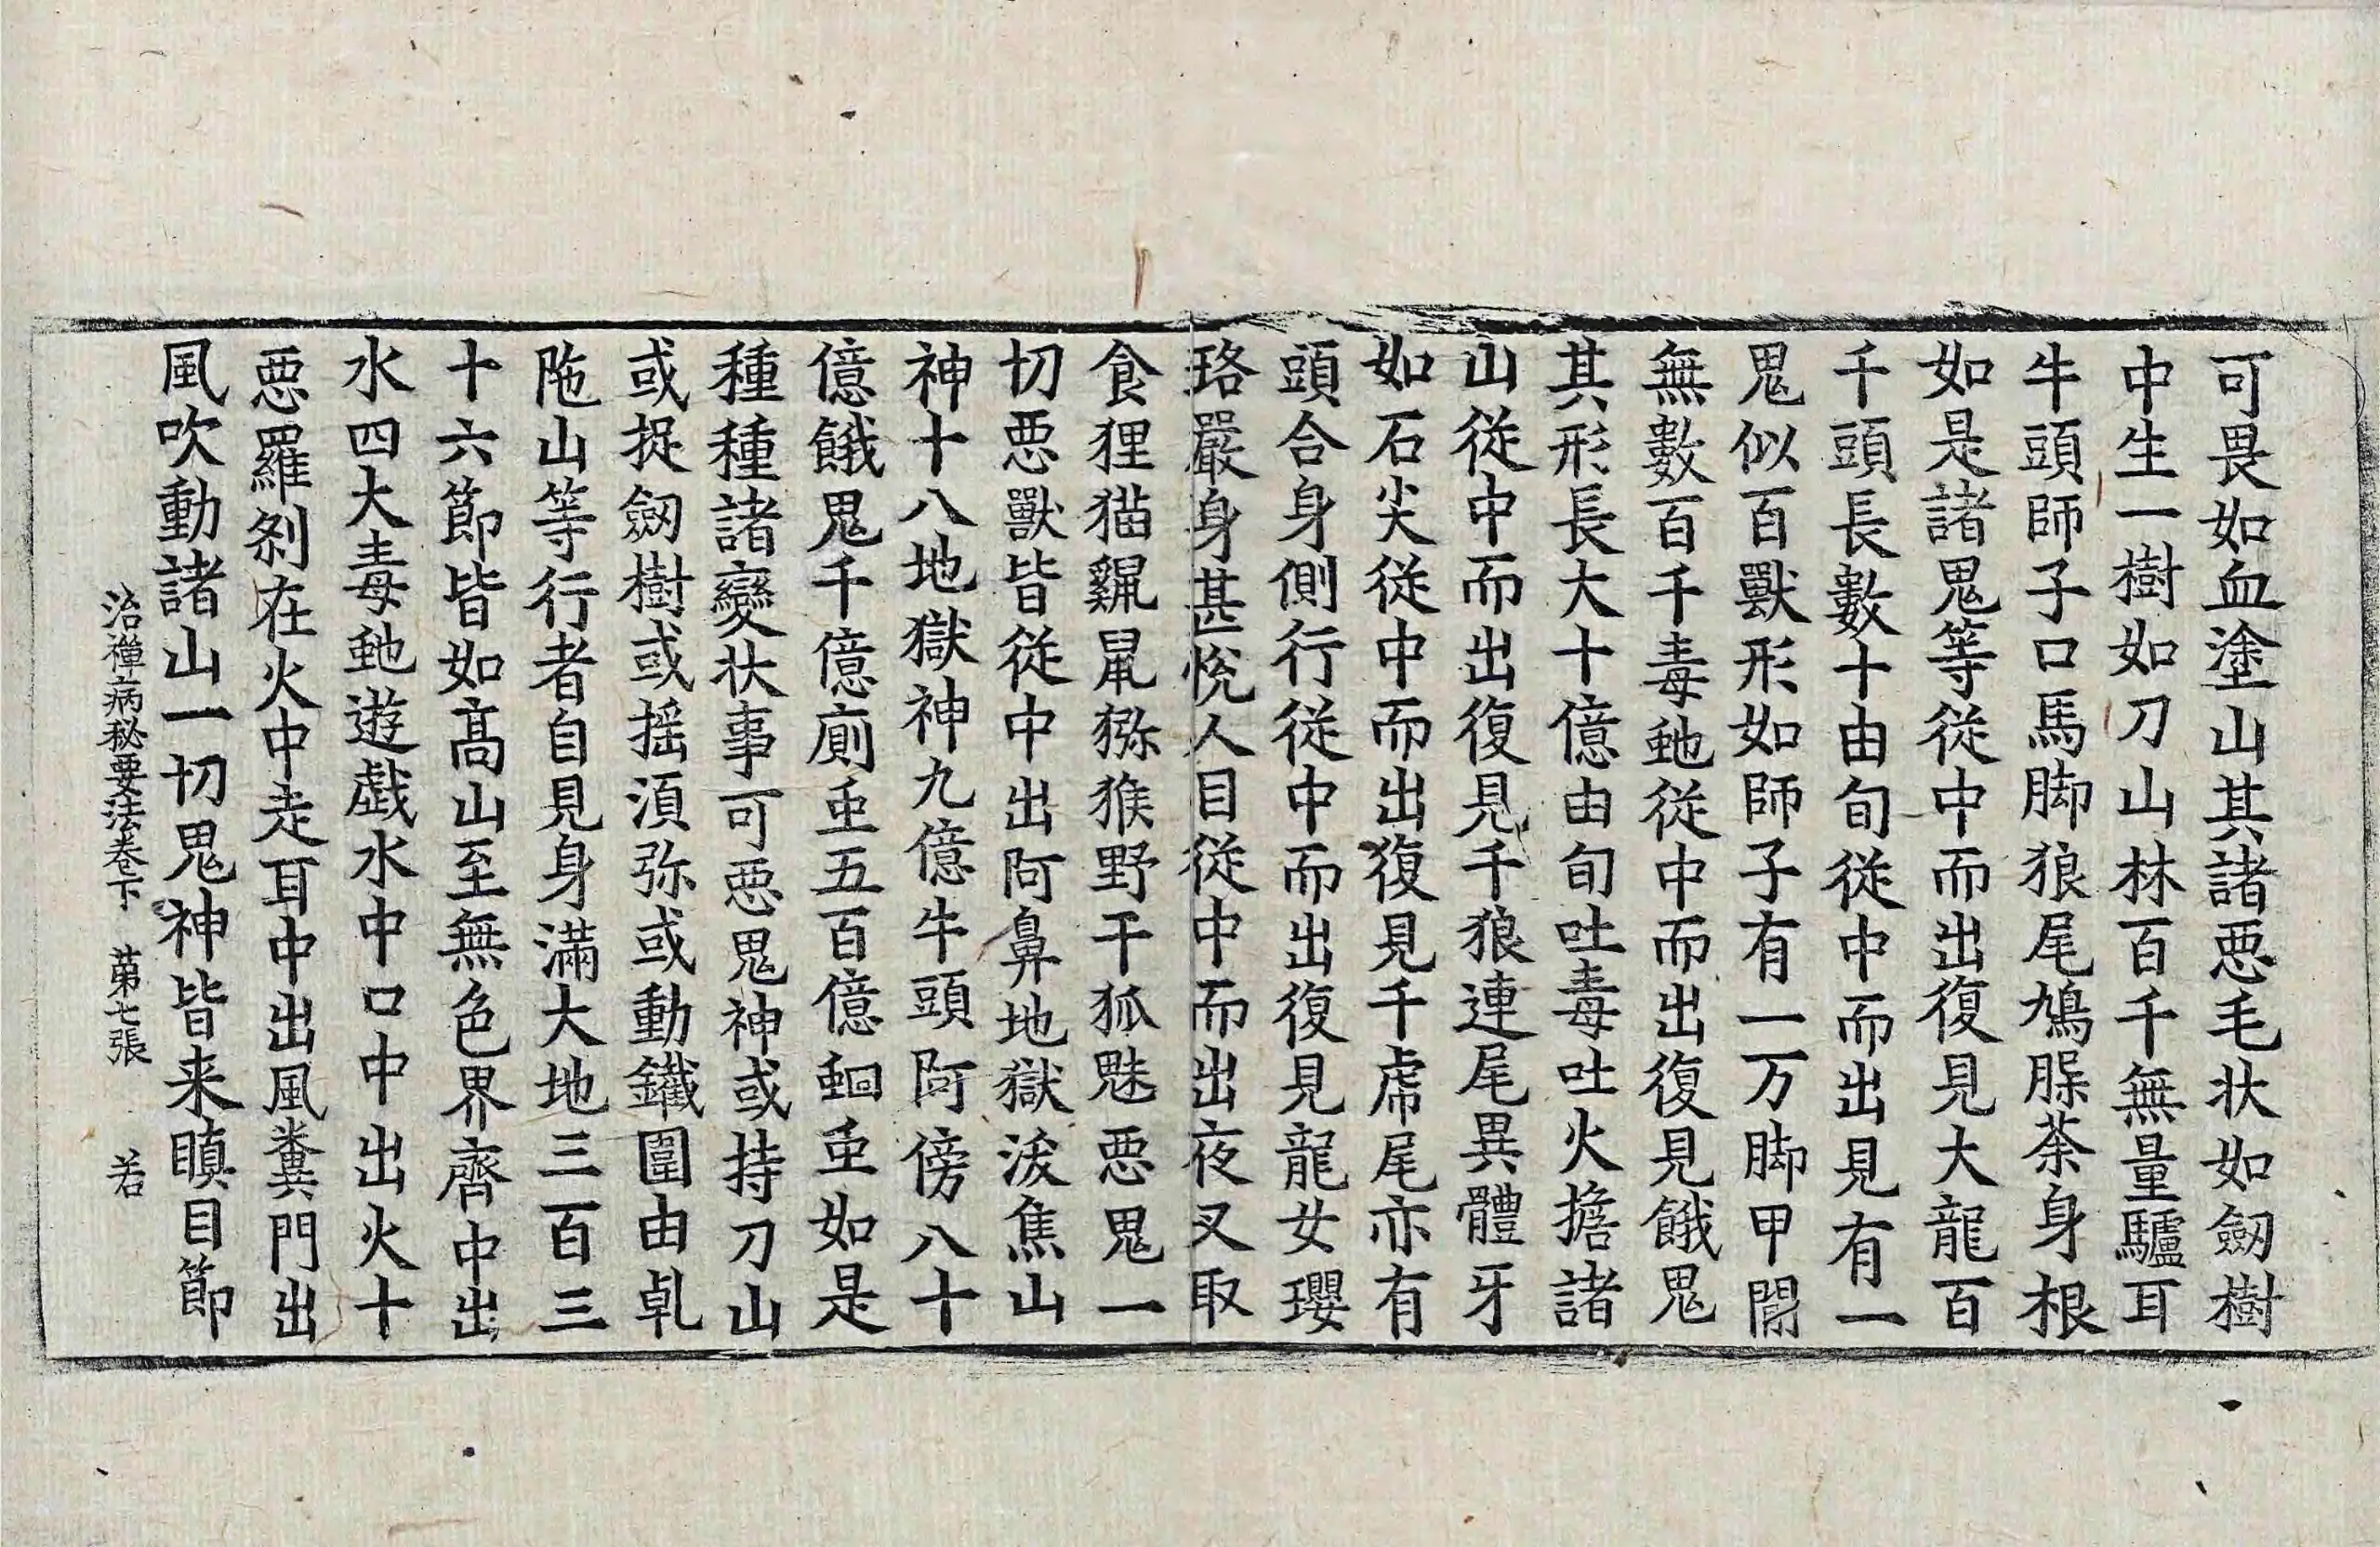 可畏如血塗山其諸惡毛状如劒樹
中生一樹如刀山林百千無量驢耳
牛頭師子口馬脚狼尾鳩脲荼身根
如是諸鬼等從中而出復見大龍百
千頭長數十由旬從中而出見有一
鬼似百獸形如師子有一万脚甲閒
無數百千毒虵從中而出復見餓鬼
其形長大十億由旬吐毒吐火擔諸
山從中而出復見千狼連尾異體牙
如石尖從中而出復見千虎尾亦有
頭合身側行從中而出復見龍女瓔
珞嚴身甚悅人目從中而出夜叉取
食狸猫鼷鼠猕猴野干狐魅惡鬼一
切惡獸皆從中出阿鼻地獄沃焦山
神十八地獄神九億牛頭阿傍八十
億餓鬼千億廁虫五百億蛔虫如是
種種諸變狀事可惡鬼神或持刀山
或捉劒樹或揺湏弥或動鐵圍由乹
陁山等行者自見身滿大地三百三
十六節皆如髙山至無色界齊中出
水四大毒虵遊戯水中口中出火十
惡羅刹在火中走耳中出風糞門出
風吹動諸山一切鬼神皆来瞋目節
治禪病秘要法卷下 苐七張 若